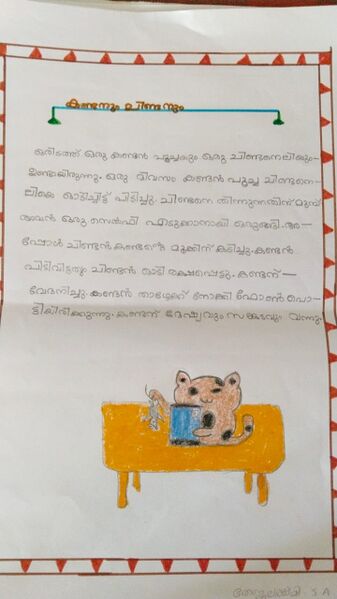 കണ്ടനും ചിണ്ടനും
ഒരിടത്ത് ഒരു കണ്ടൻ പൂച്ചയും ഒരു ചിണ്ടനെലിയും
ഉണ്ടായിരുന്നു. ഒരു ദിവസം കണ്ടൻ പൂച്ച ചിണ്ടനെ-
ലിയെ ഓടിച്ചിട്ട് പിടിച്ചു. ചിണ്ടനെ തിന്നുന്നതിന് മുമ്പ്
അവൻ ഒരു സെൽഫി എടുക്കാനായി ഒരുങ്ങി. അ-
പ്പോൾ ചിണ്ടൻ കണ്ടന്റെ മൂക്കിന് കടിച്ചു. കണ്ടൻ
പിടിവിട്ടതും ചിണ്ടൻ ഓടി രക്ഷപ്പെട്ടു. കണ്ടന് -
വേദനിച്ചു. കണ്ടൻ താഴേക്ക് നോക്കി ഫോൺ പൊ-
ട്ടികിടക്കുന്നു. കണ്ടന് ദേഷ്യവും സങ്കടവും വന്നു.
5 A